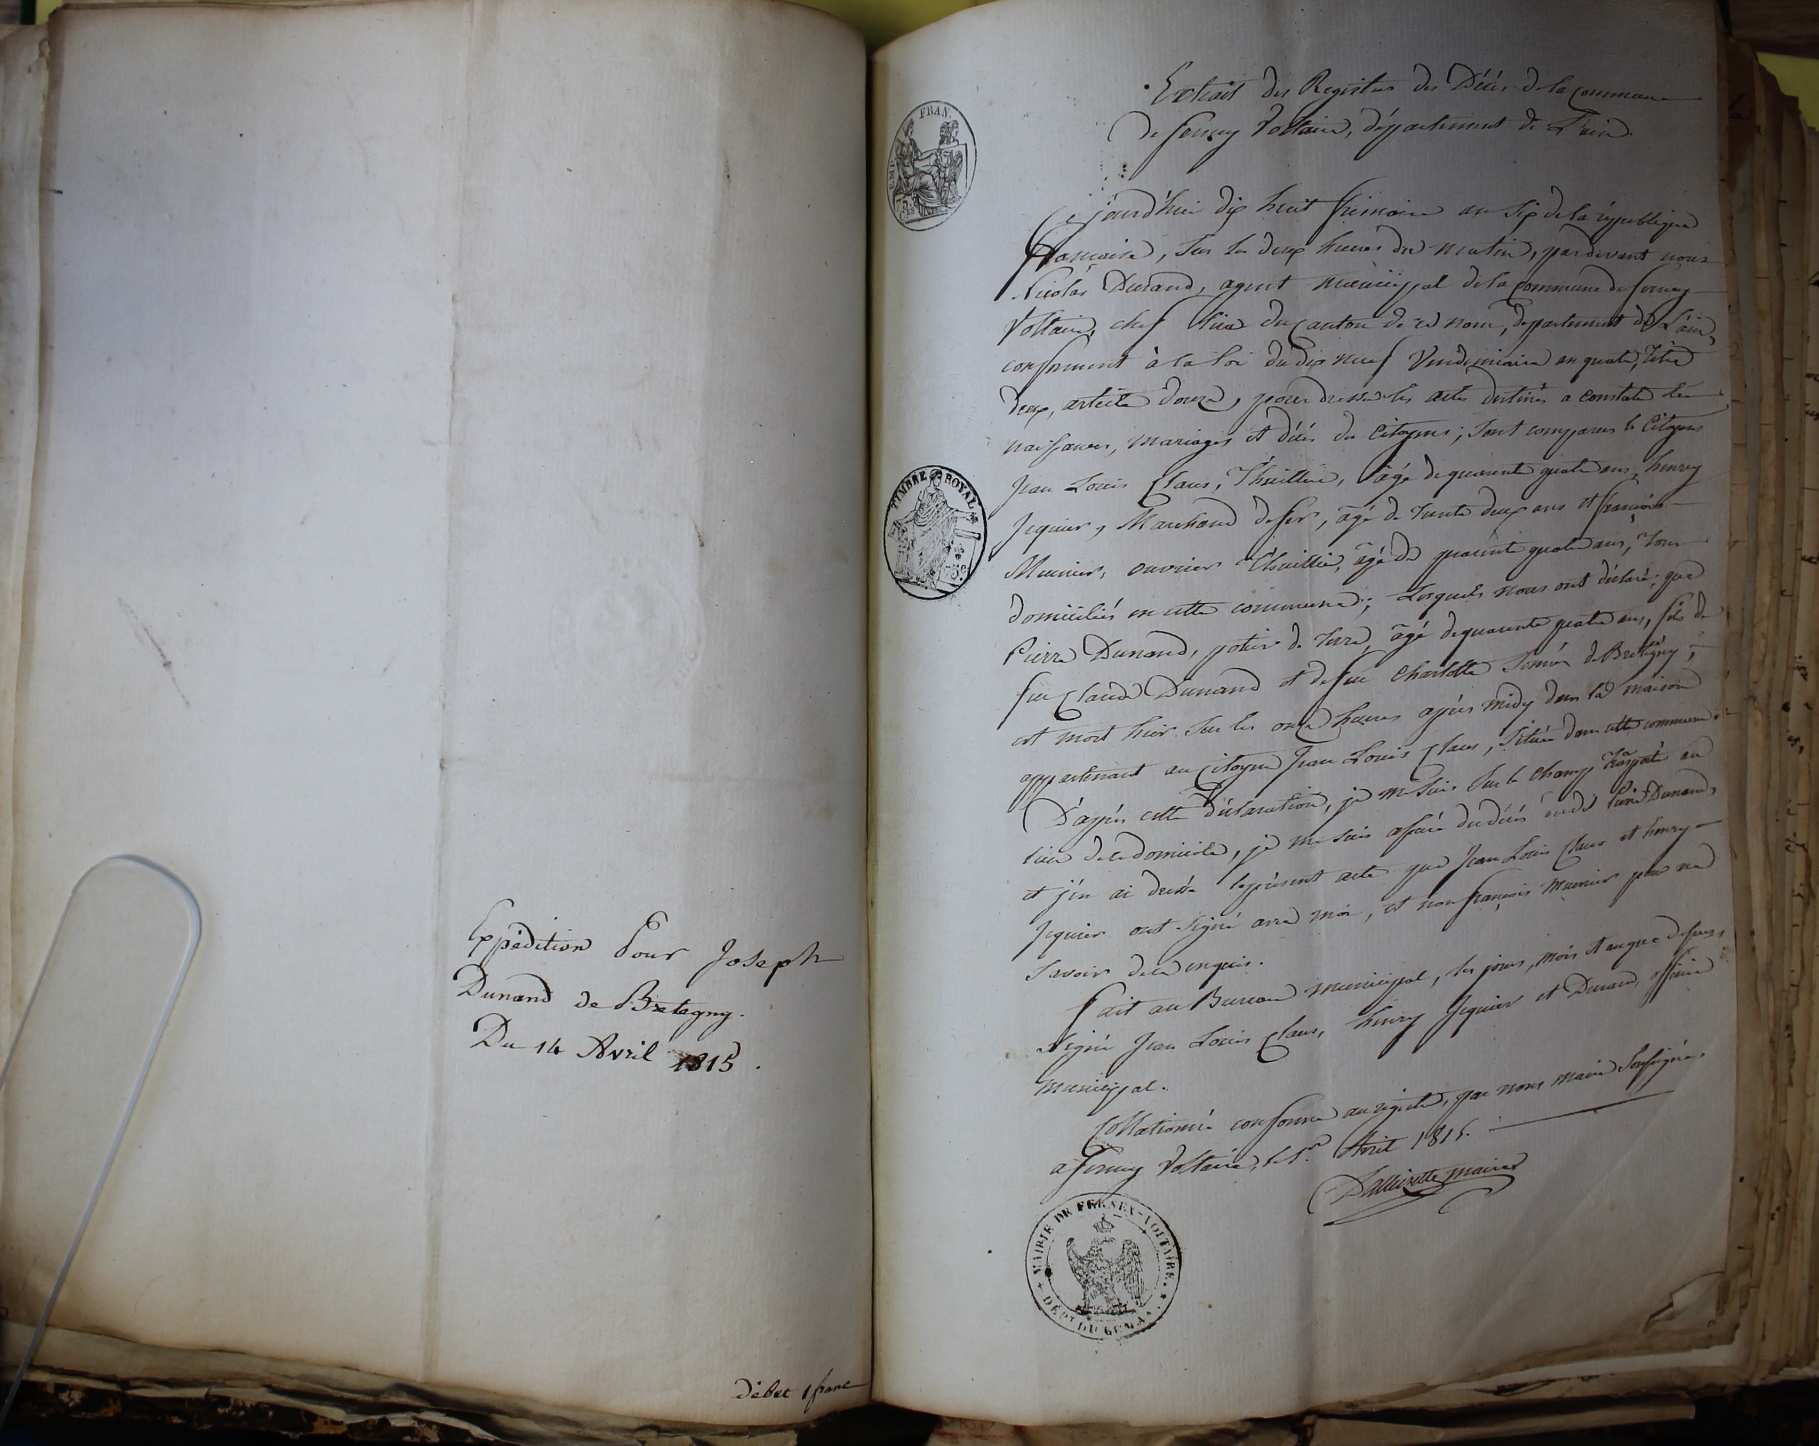 Expédition Pour Joseph
Dunand de Bretagny.
Du 14 Avril 1815.
Débet 1 franc
EMP. FRAN.
TIMBRE ROYAL
Extrait des Registres des Décés de la Commune
de ferney Voltaire, département de L'ain.
Ce jourd'hui dix huit frimaire an Six de la république
francaise, sur les deux heures du matin, par devant nous
Nicolas Durand, agent municipal de la Commune de ferney
Voltaire, chef lieu du canton de ce nom, département de L'ain,
conforment à la loi du dix neuf Vendémiaire an quatre, titre
deux, article douze, pour dresser les actes destinés a constater les
naissances, mariages et décés des Citoyens; sont comparus les Citoyens
Jean Louis Claus, Thuillier, âgé de quarante quatre ans, henry
Jequier, Marchand de fer, âgé de trente deux ans et françois
Meunier, ouvrier Thuillier, âgé de quarante quatre ans, tous
domiciliés en cette commune; Lesquels nous ont déclaré, que
Pierre Dunand, potier de terre, âgé de quarante quatre ans, fils de
feu Claude Dunand et de feue Charlotte de Bretigny;
est mort hier sur les onze heures après midy dans la maison
appartenant au Citoyen Jean Louis Claus, située dans cette commune.
D'après cette déclaration, je me suis sur le champ transporté au
lieu de ce domicile, je me suis assuré du décés dudit Pierre Dunand,
et j'en ai dressé le présent acte que Jean Louis Claus et henry
Jequier ont signé avec moi, et non françois Meunier pour ne
savoir de ce enquis.
fait au Bureau municipal, les jour, mois et an que dessus,
signé Jean Louis Claus, henry Jequier et Durand, officier
municipal.
Collationné conforme au registre, par nous maire soussigné,
a ferney Voltaire, le Avril 1815.
maire
MAIRIE DE FERNEX-VOLTAIRE. DÉPT DU LÉMAN.